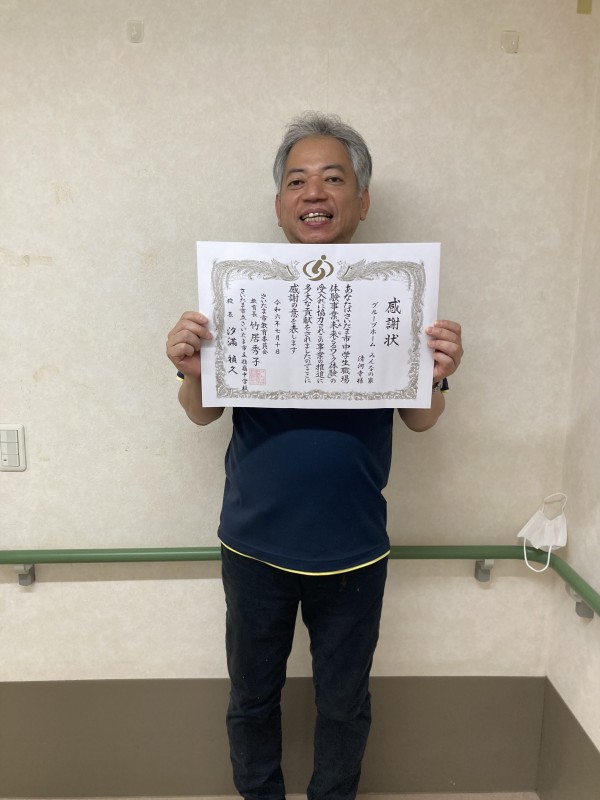 感謝状
グループホーム みんなの家
清河幸様
あなたはさいたま市中学生職場
体験事業「未来くるワーク体験」の
受入れに協力されこの事業の推進に
多大な貢献をされましたのでここに
感謝の意を表します
令和六年七月十日
さいたま市教育委員会
教育長 竹居秀子
さいたま市立さいたま市立指扇中学校
校長 汐満 禎久